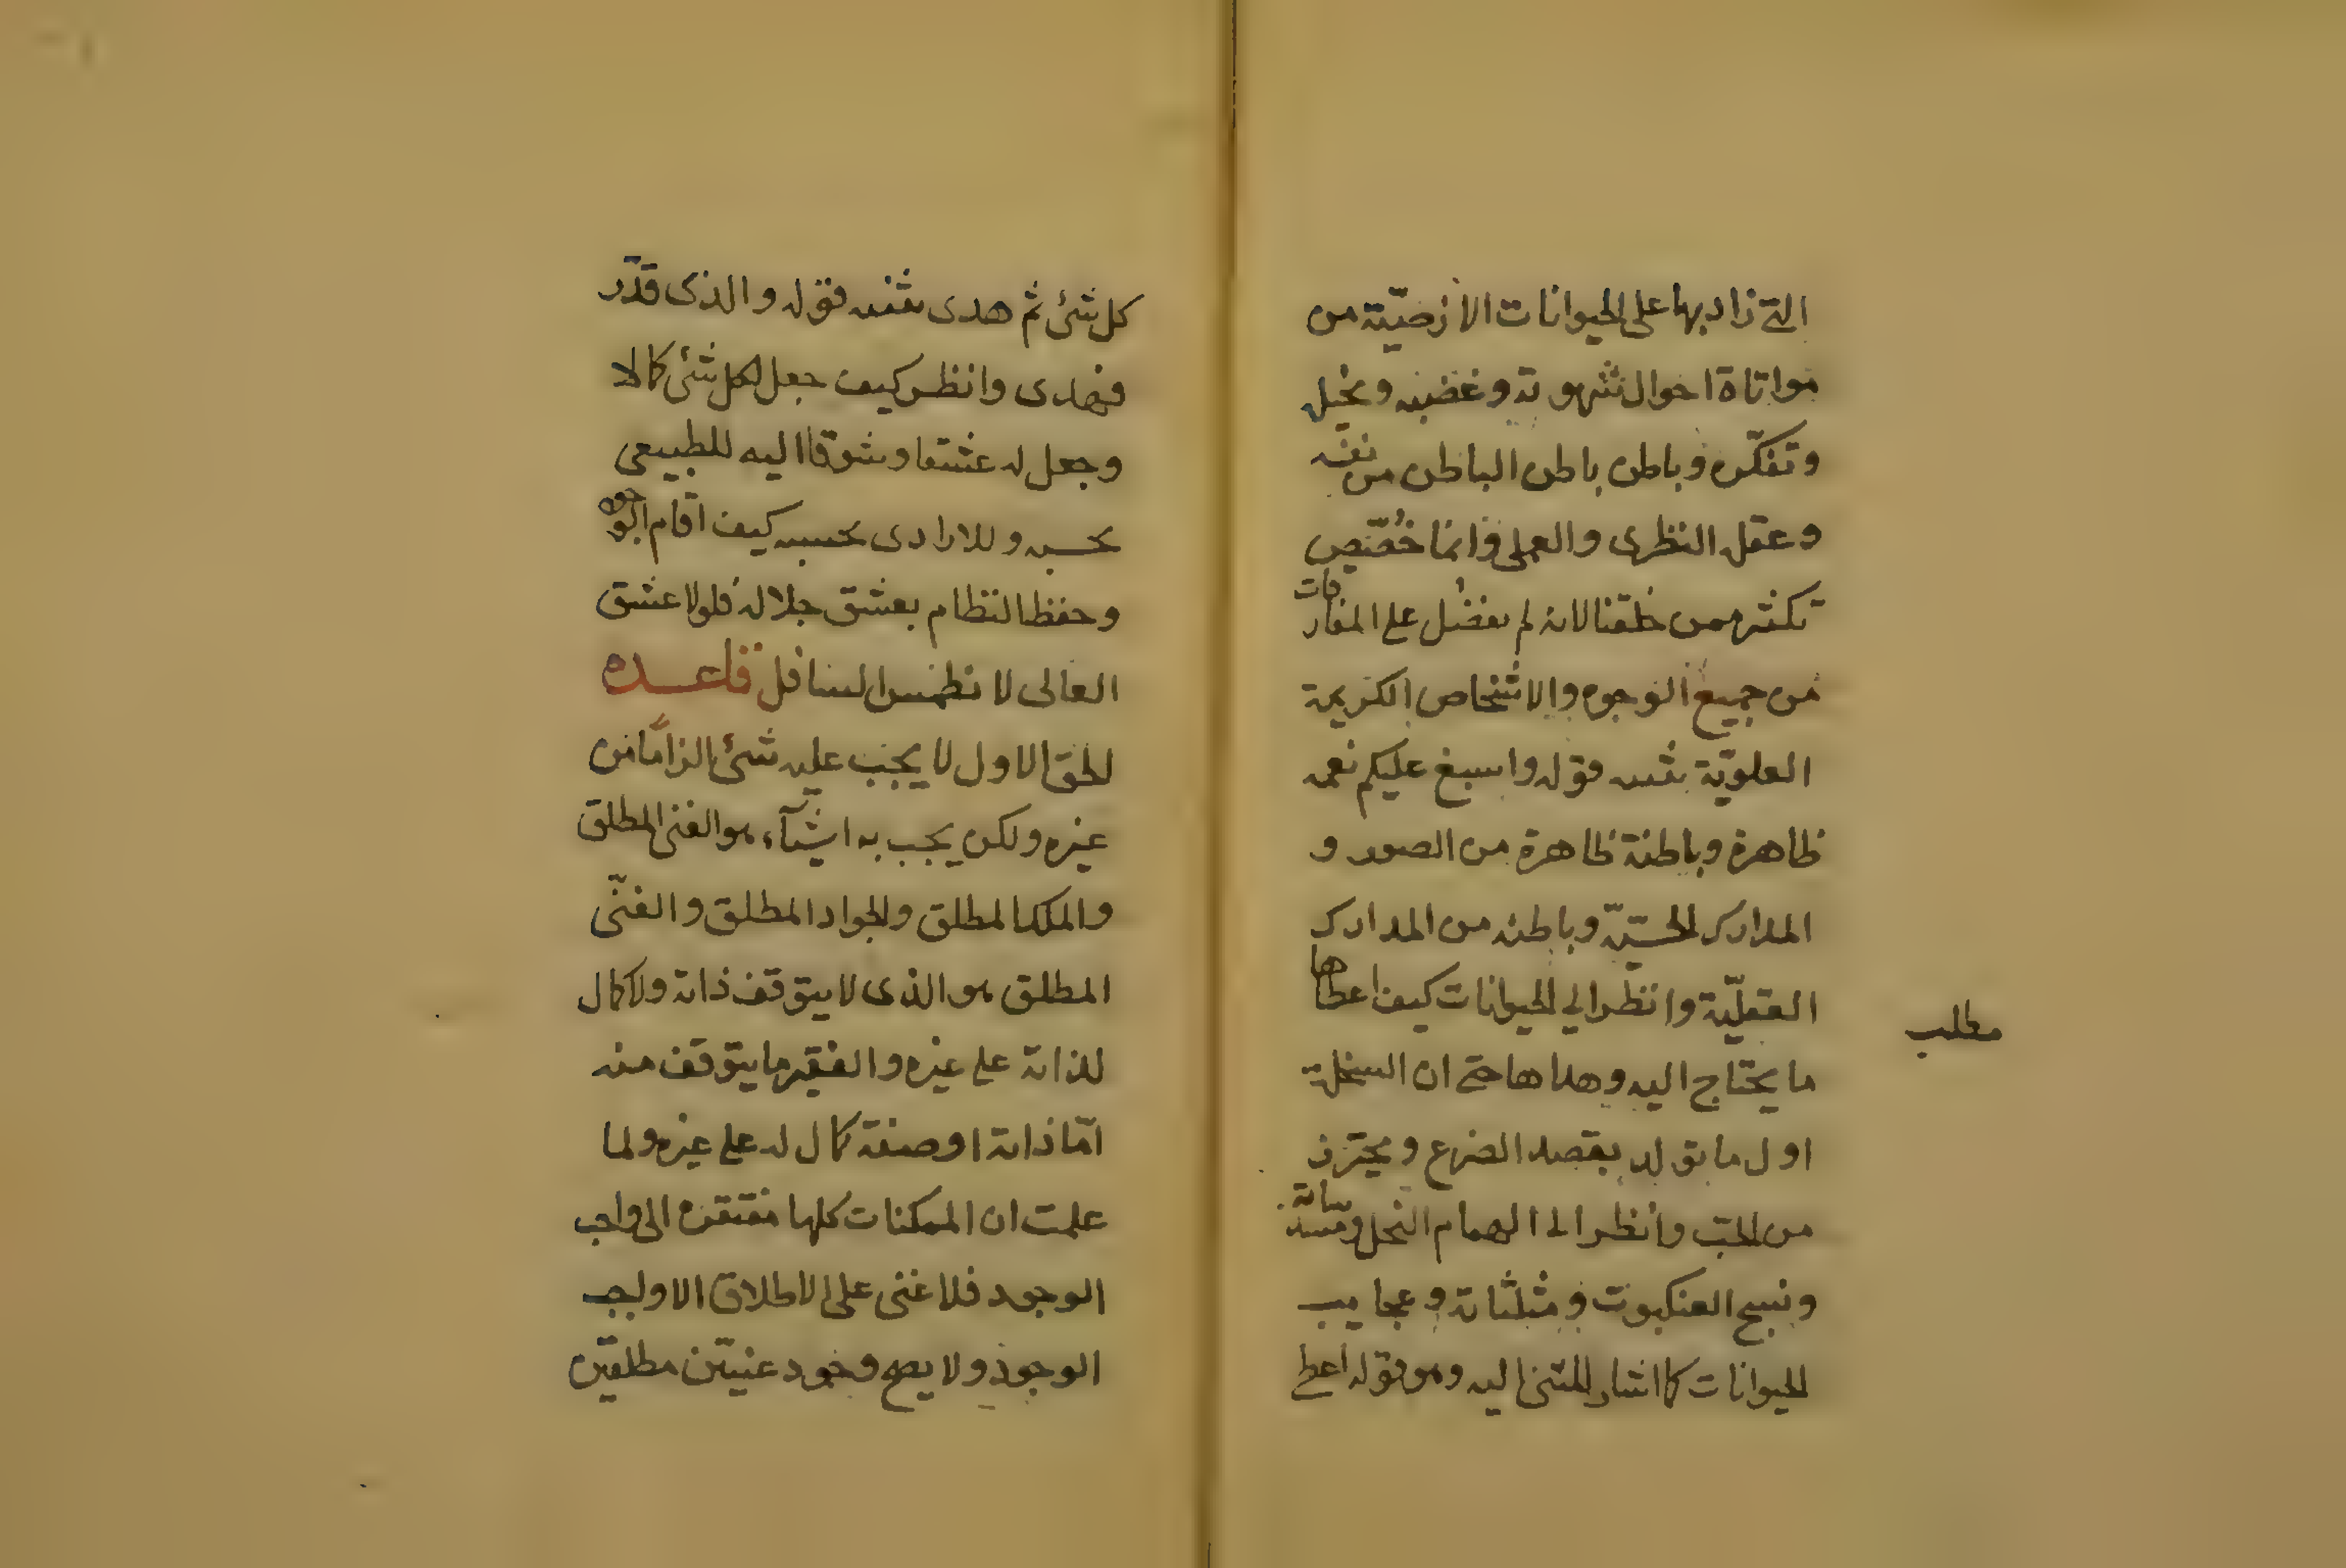 التی زاد بها علی الحیوانات الارضیّة من
مواتاة احوال شهوته وغضبه وتخیل
وتفکّره وباطن باطن الباطن من نفسه
وعقله النظری والعملی وانما خُصّص
تکثیر ممن خلقنا لانه لم یفضل علی المفارقات
من جمیع الوجوه والاشخاص الکریمة
العلویّة مثنیه قوله واسبغ علیکم نعمه
ظاهرة وباطنة ظاهرة من الصور و
المدارک الحسّیّة وباطنه من المدارک
العقلیّة وانظر الی الحیوانات کیف اعطاها
مطلب
ما یحتاج الیه وهداها حتی ان السخلة
اول ما تولد یقصد الضرع ویحترز
من الحب وانظر الی الهام النحل ومسدساته
ونسج العنکبوت ومثلثاته وعجایب
الحیوانات کما اشار المثنی الیه وهو قوله اعطی
کل شئ ثم هدی مثنیه قوله والذی قدّر
فهدی وانظر کیف جعل لکل شئ کمالا
وجعل له عشقا وشوقا الیه للطبیعی
بحسبه وللارادی بحسبه کیف اقام الوجود
وحفظ النظام بعشق جلاله فلولا عشق
العالی لانطمس السافل قاعده
الحق الاول لا یجب علیه شئ الزامًا من
غیره ولکن یجب به اشیآء هو الغنی المطلق
والملک المطلق والجواد المطلق والغنّی
المطلق هو الذی لا یتوقف ذاته ولا کمال
لذاته علی غیره والفقیر ما یتوقف منه
امّا ذاته او صفة کمال له علی غیره ولما
علمت ان الممکنات کلها مفتقره الی واجب
الوجود فلا غنی علی الاطلاق الا واجب
الوجود ولا یصح وجود غنیّین مطلقین